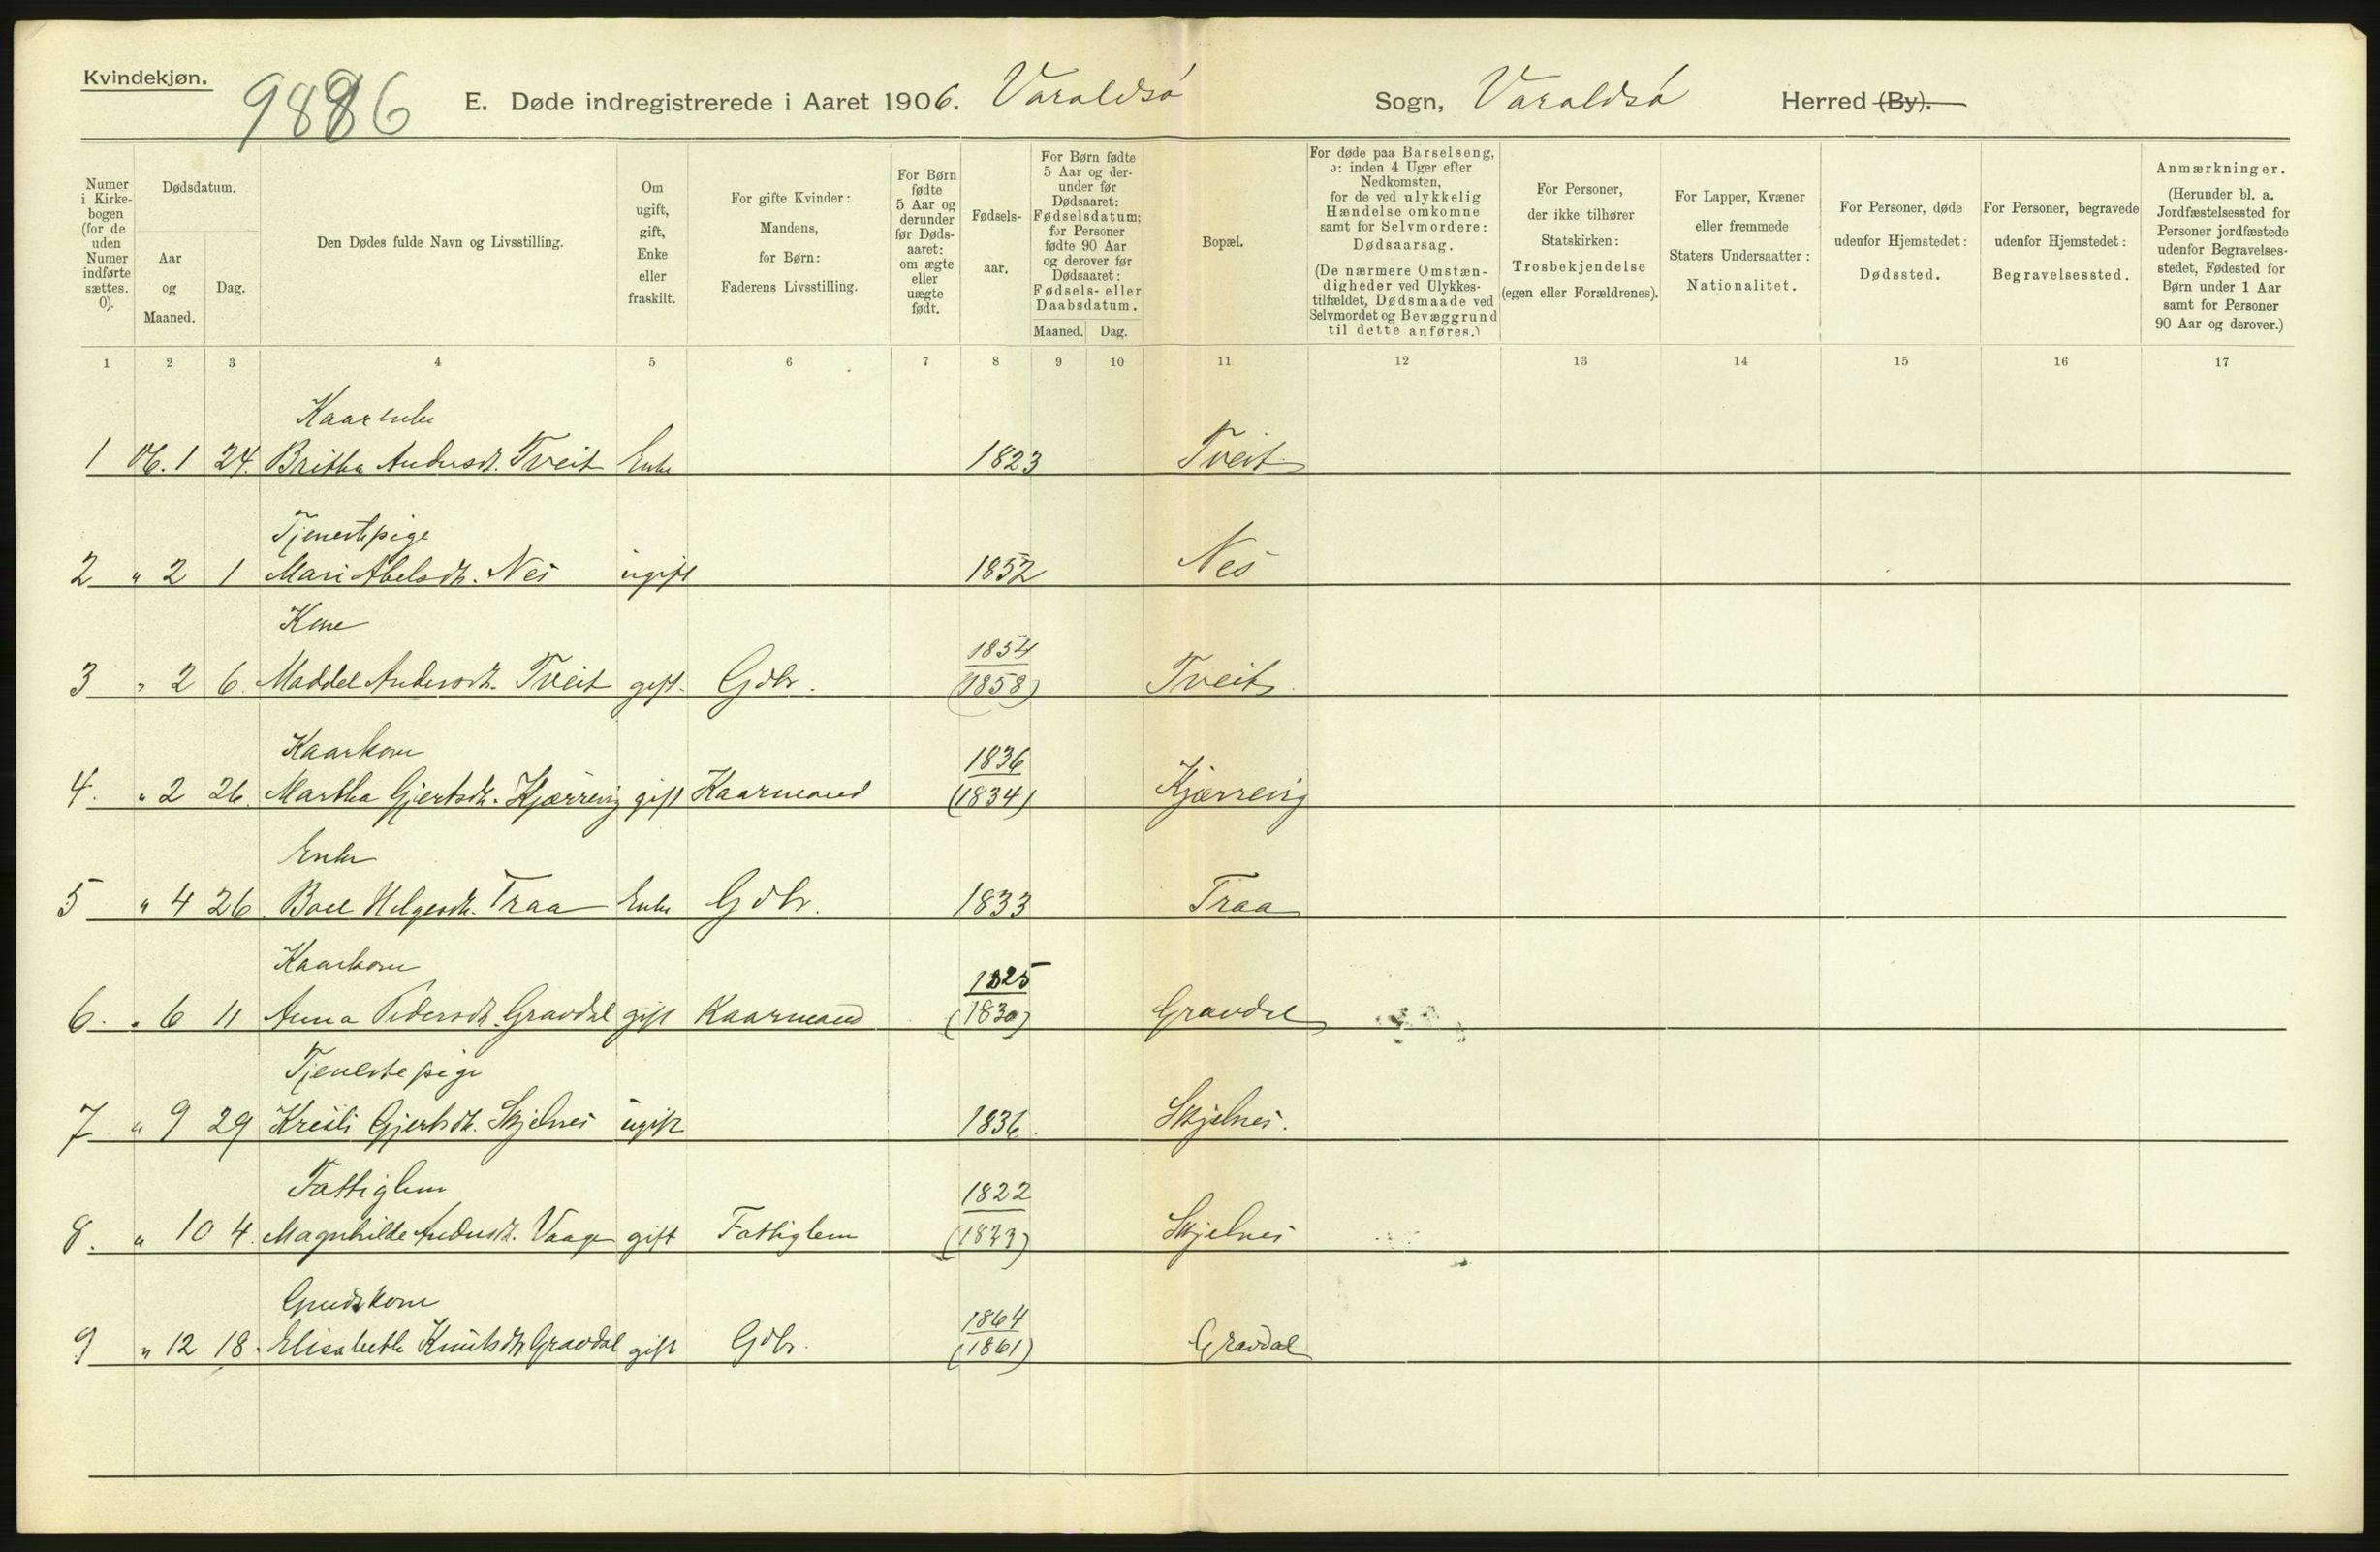 Kvindekjøn.
E. Døde indregistrerede i Aaret 1906. Varaldsø Sogn, Varaldsø Herred (By).
Numer i Kirke-bogen (for de uden Numer indførte sættes. 0).
Dødsdatum.
Aar og Maaned.
Dag.
Den Dødes fulde Navn og Livsstilling.
Om ugift, gift, Enke eller fraskilt.
For gifte Kvinder: Mandens, for Børn: Faderens Livsstilling.
For Børn fødte 5 Aar og derunder før Døds-aaret: om ægte eller uægte født.
Fødsels-aar.
For Børn fødte 5 Aar og der-under før Dødsaaret: Fødselsdatum; for Personer fødte 90 Aar og derover før Dødsaaret: Fødsels- eller Daabsdatum.
Maaned. Dag.
Bopæl.
For døde paa Barselseng, ɔ: inden 4 Uger efter Nedkomsten, for de ved ulykkelig Hændelse omkomne samt for Selvmordere: Dødsaarsag.
(De nærmere Omstæn-digheder ved Ulykkes-tilfældet, Dødsmaade ved Selvmordet og Bevæggrund til dette anføres.)
For Personer, der ikke tilhører Statskirken: Trosbekjendelse (egen eller Forældrenes).
For Lapper, Kvæner eller fremmede Staters Undersaatter: Nationalitet.
For Personer, døde udenfor Hjemstedet: Dødssted.
For Personer, begravede udenfor Hjemstedet: Begravelsessted.
Anmærkninger.
(Herunder bl. a. Jordfæstelsessted for Personer jordfæstede udenfor Begravelses-stedet, Fødested for Børn under 1 Aar samt for Personer 90 Aar og derover.)
1 2 3 4 5 6 7 8 9 10 11 12 13 14 15 16 17
Kaarenke
1 06. 1 24. Britha Andersdt. Tveit Enke 1823 Tveit
Tjenestpige
2 " 2 1 Mari Abelsdt. Nes ugift 1852 Nes
Kone
1854
3 " 2 6. Maddel Andersdt. Tveit gift. Gdbr. (1858) Tveit
Kaarkone
1836
4. " 2 26. Martha Gjertsdt. Kjærrevig gift Kaarmand (1834) Kjærrevig
Enke
5 " 4 26. Boel Helgesdt. Traa Enke Gdbr. 1833 Traa
Kaarkone
1825
6. " 6 11 Anna Pedersdt. Gravdal gift Kaarmand (1830) Gravdal
Tjenestepige
7 " 9 29 Kresti Gjertsdt. Skjelnes ugift 1836. Skjelnes.
Fattiglem
1822
8. " 10 4. Magnhilde Andersdt. Vaage gift Fattiglem (1823) Skjelnes
1864
9 " 12 18. Elisabeth Knutsdt. Gravdal gift Gdbr. (1861) Gravdal